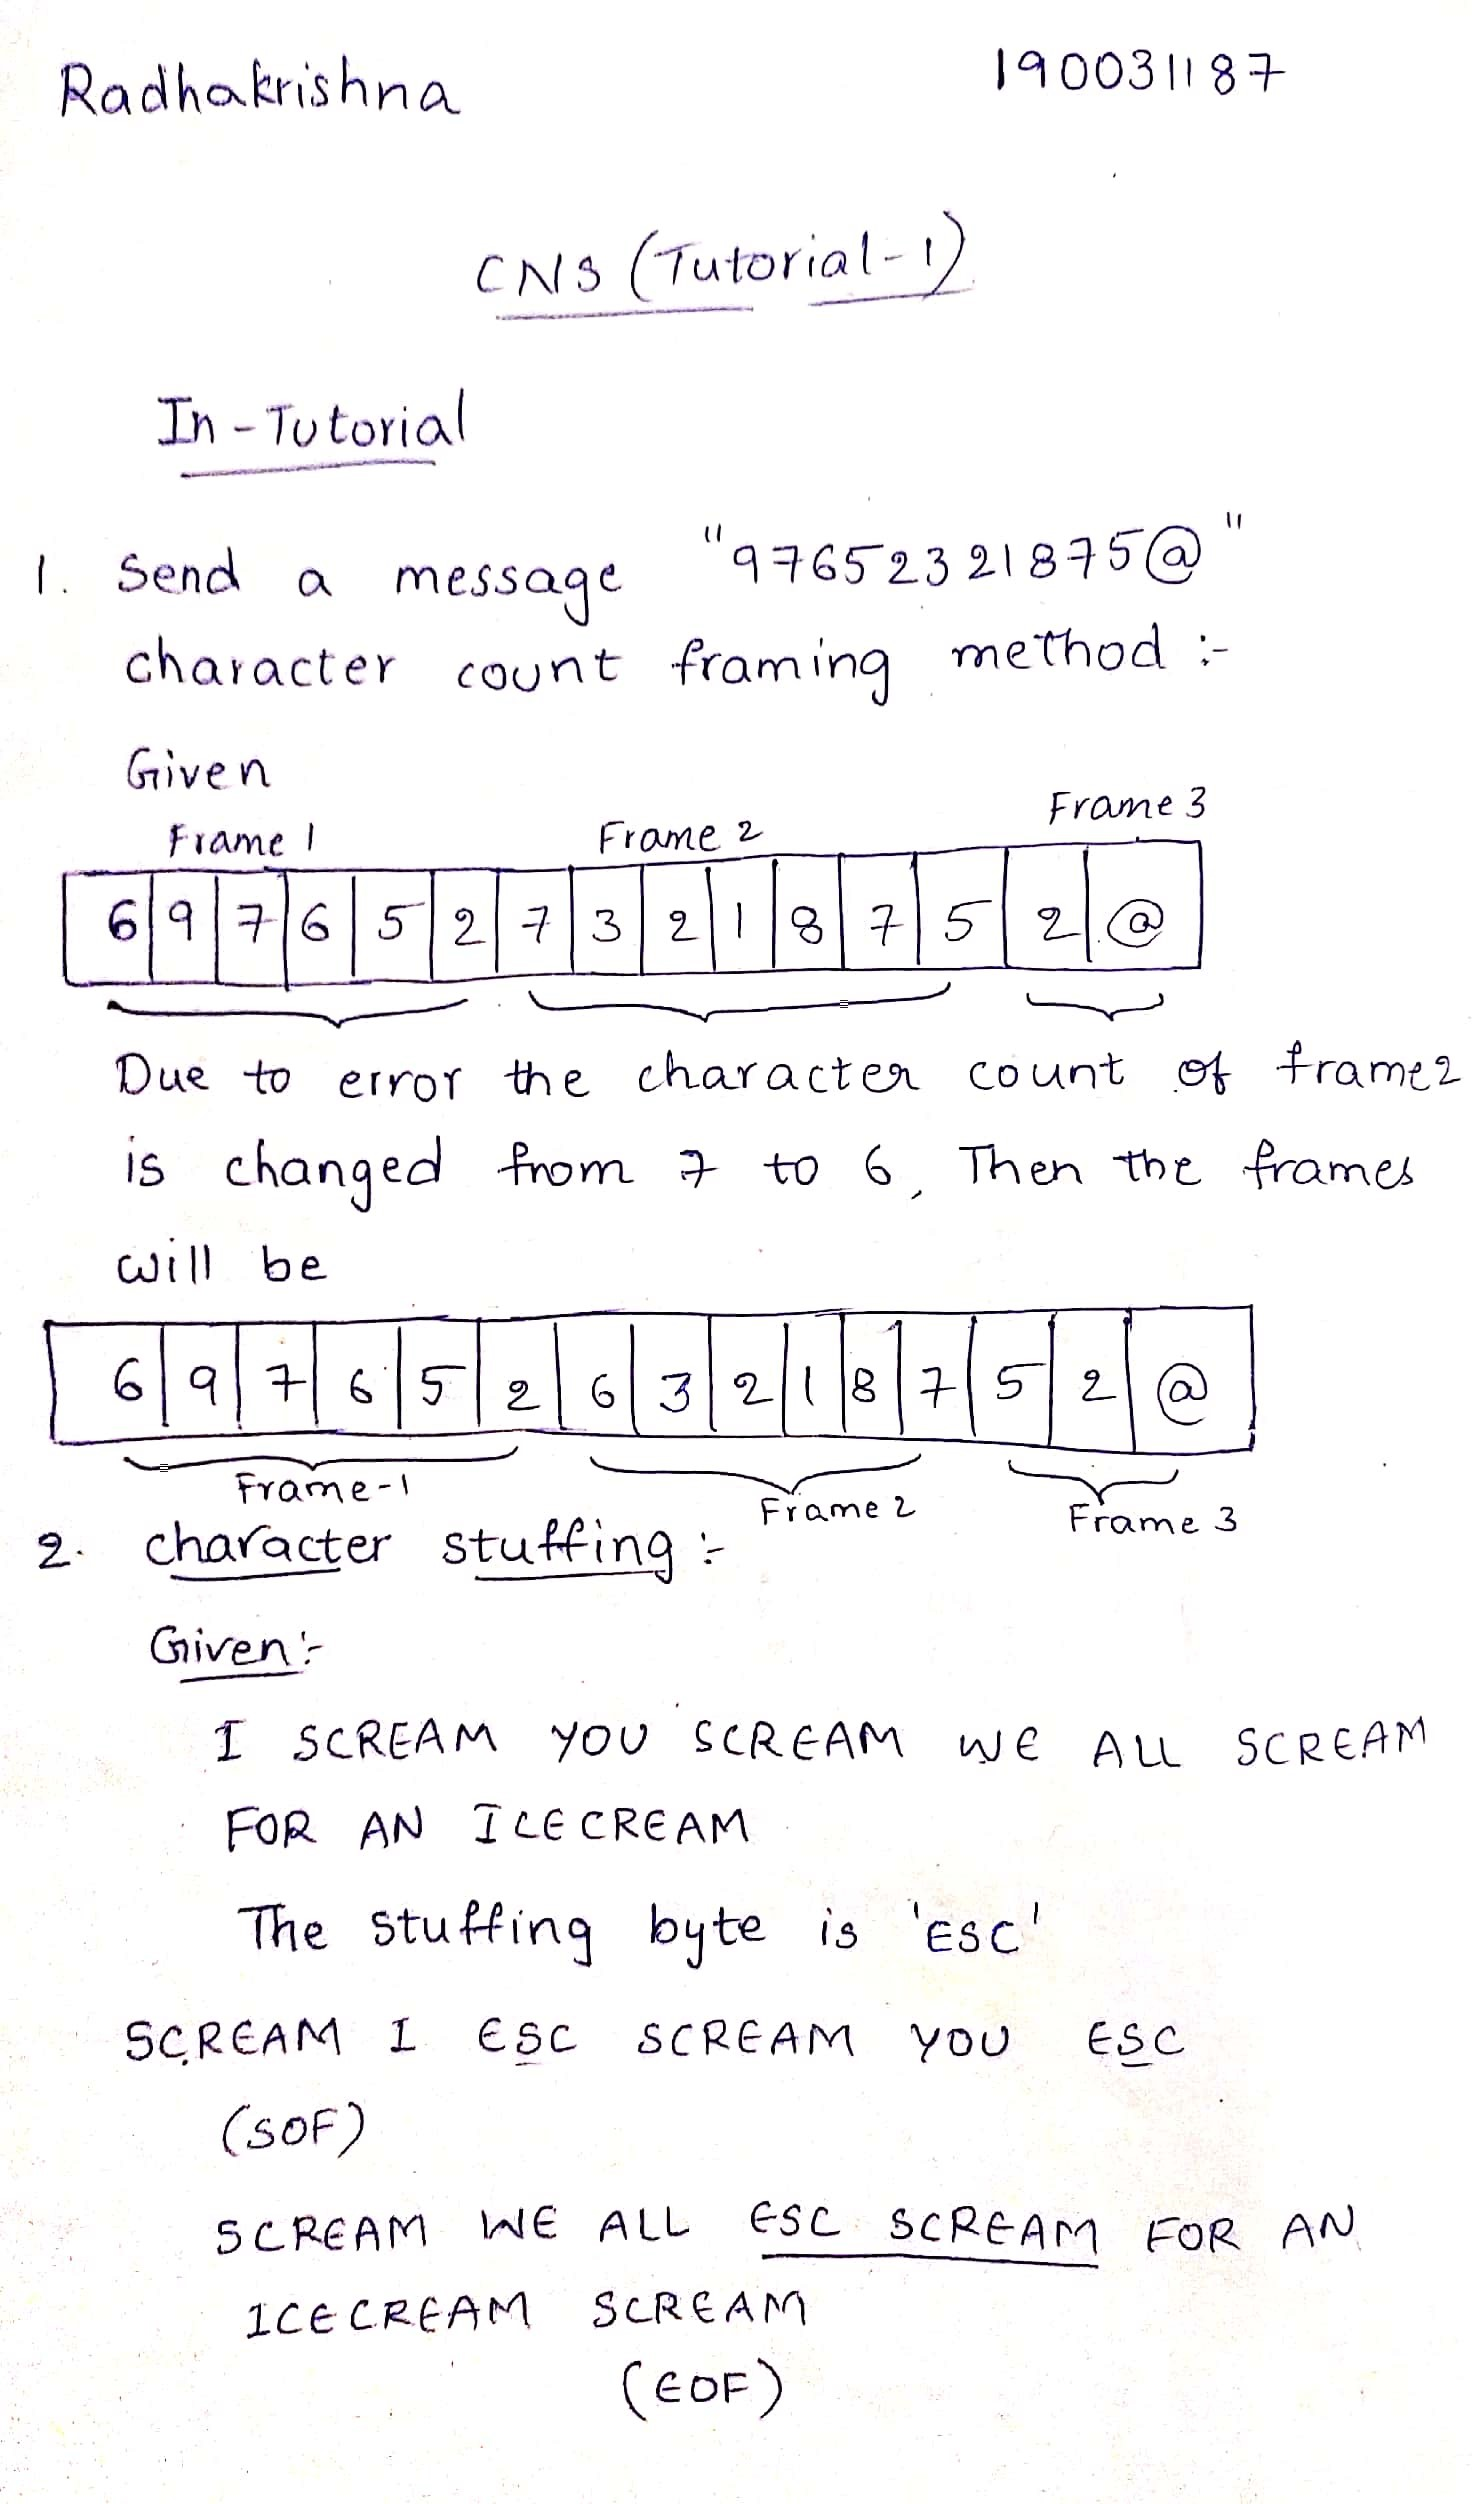 Radhakrishna 190031187
CNS (Tutorial-1)
In-Tutorial
1. Send a message "97652321875@"
character count framing method :-
Given
Frame 1 Frame 2 Frame 3
6 9 7 6 5 2 7 3 2 1 8 7 5 2 @
Due to error the character count of frame2
is changed from 7 to 6, Then the frames
will be
6 9 7 6 5 2 6 3 2 1 8 7 5 2 @
Frame-1 Frame 2 Frame 3
2. character stuffing :-
Given :-
I SCREAM YOU SCREAM WE ALL SCREAM
FOR AN ICECREAM
The stuffing byte is 'ESC'
SCREAM I ESC SCREAM YOU ESC
(SOF)
SCREAM WE ALL ESC SCREAM FOR AN
ICECREAM SCREAM
(EOF)